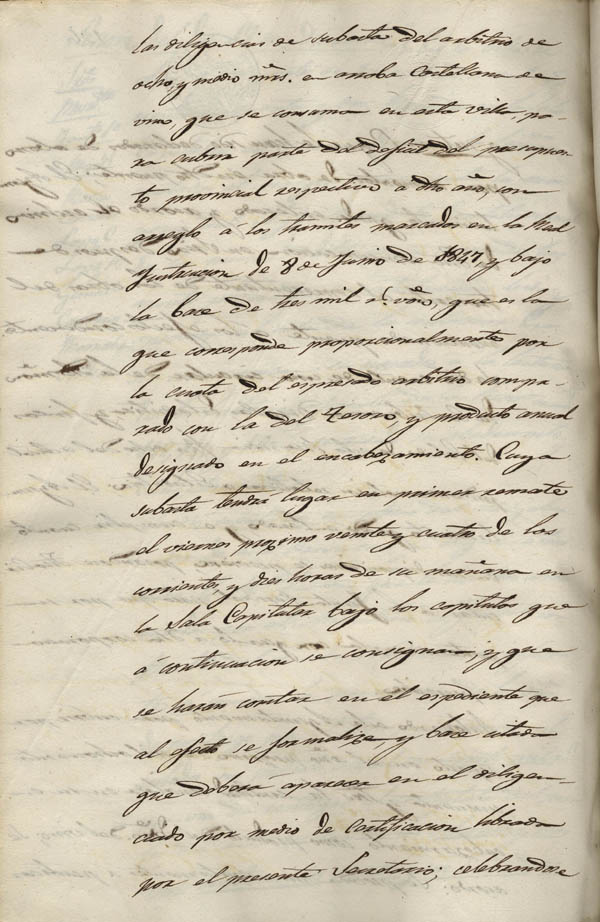 las diligencias de subasta del arbitrio de
ocho, y medio mrs. en arroba Castellana de
vino, que se consuma en esta villa, pa-
ra cubrir parte del deficit del presupues-
to provincial respectivo a dho año, con
arreglo á los tramites marcados en la Real
Instruccion de 8 de Junio de 1847, y bajo
la bace de tres mil rs. von, que es la
que corresponde proporcionalmente por
la cuota del espresado arbitrio compa-
rado con la del Tesoro, y producto anual
designado en el encabezamiento. Cuya
subasta tendrá lugar en primer remate
el viernes proximo veinte y cuatro de los
corrientes, y dies horas de su mañana en
la Sala Capitular bajo los capitulos que
á continuacion se consignan, y que
se harán constar en el espediente que
al efecto se formalize, y bace citada
que deberá aparecer en el diligen-
ciado por medio de Certificacion librada
por el presente Secretario; celebrandose